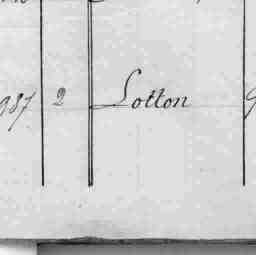 987 2 Lotton